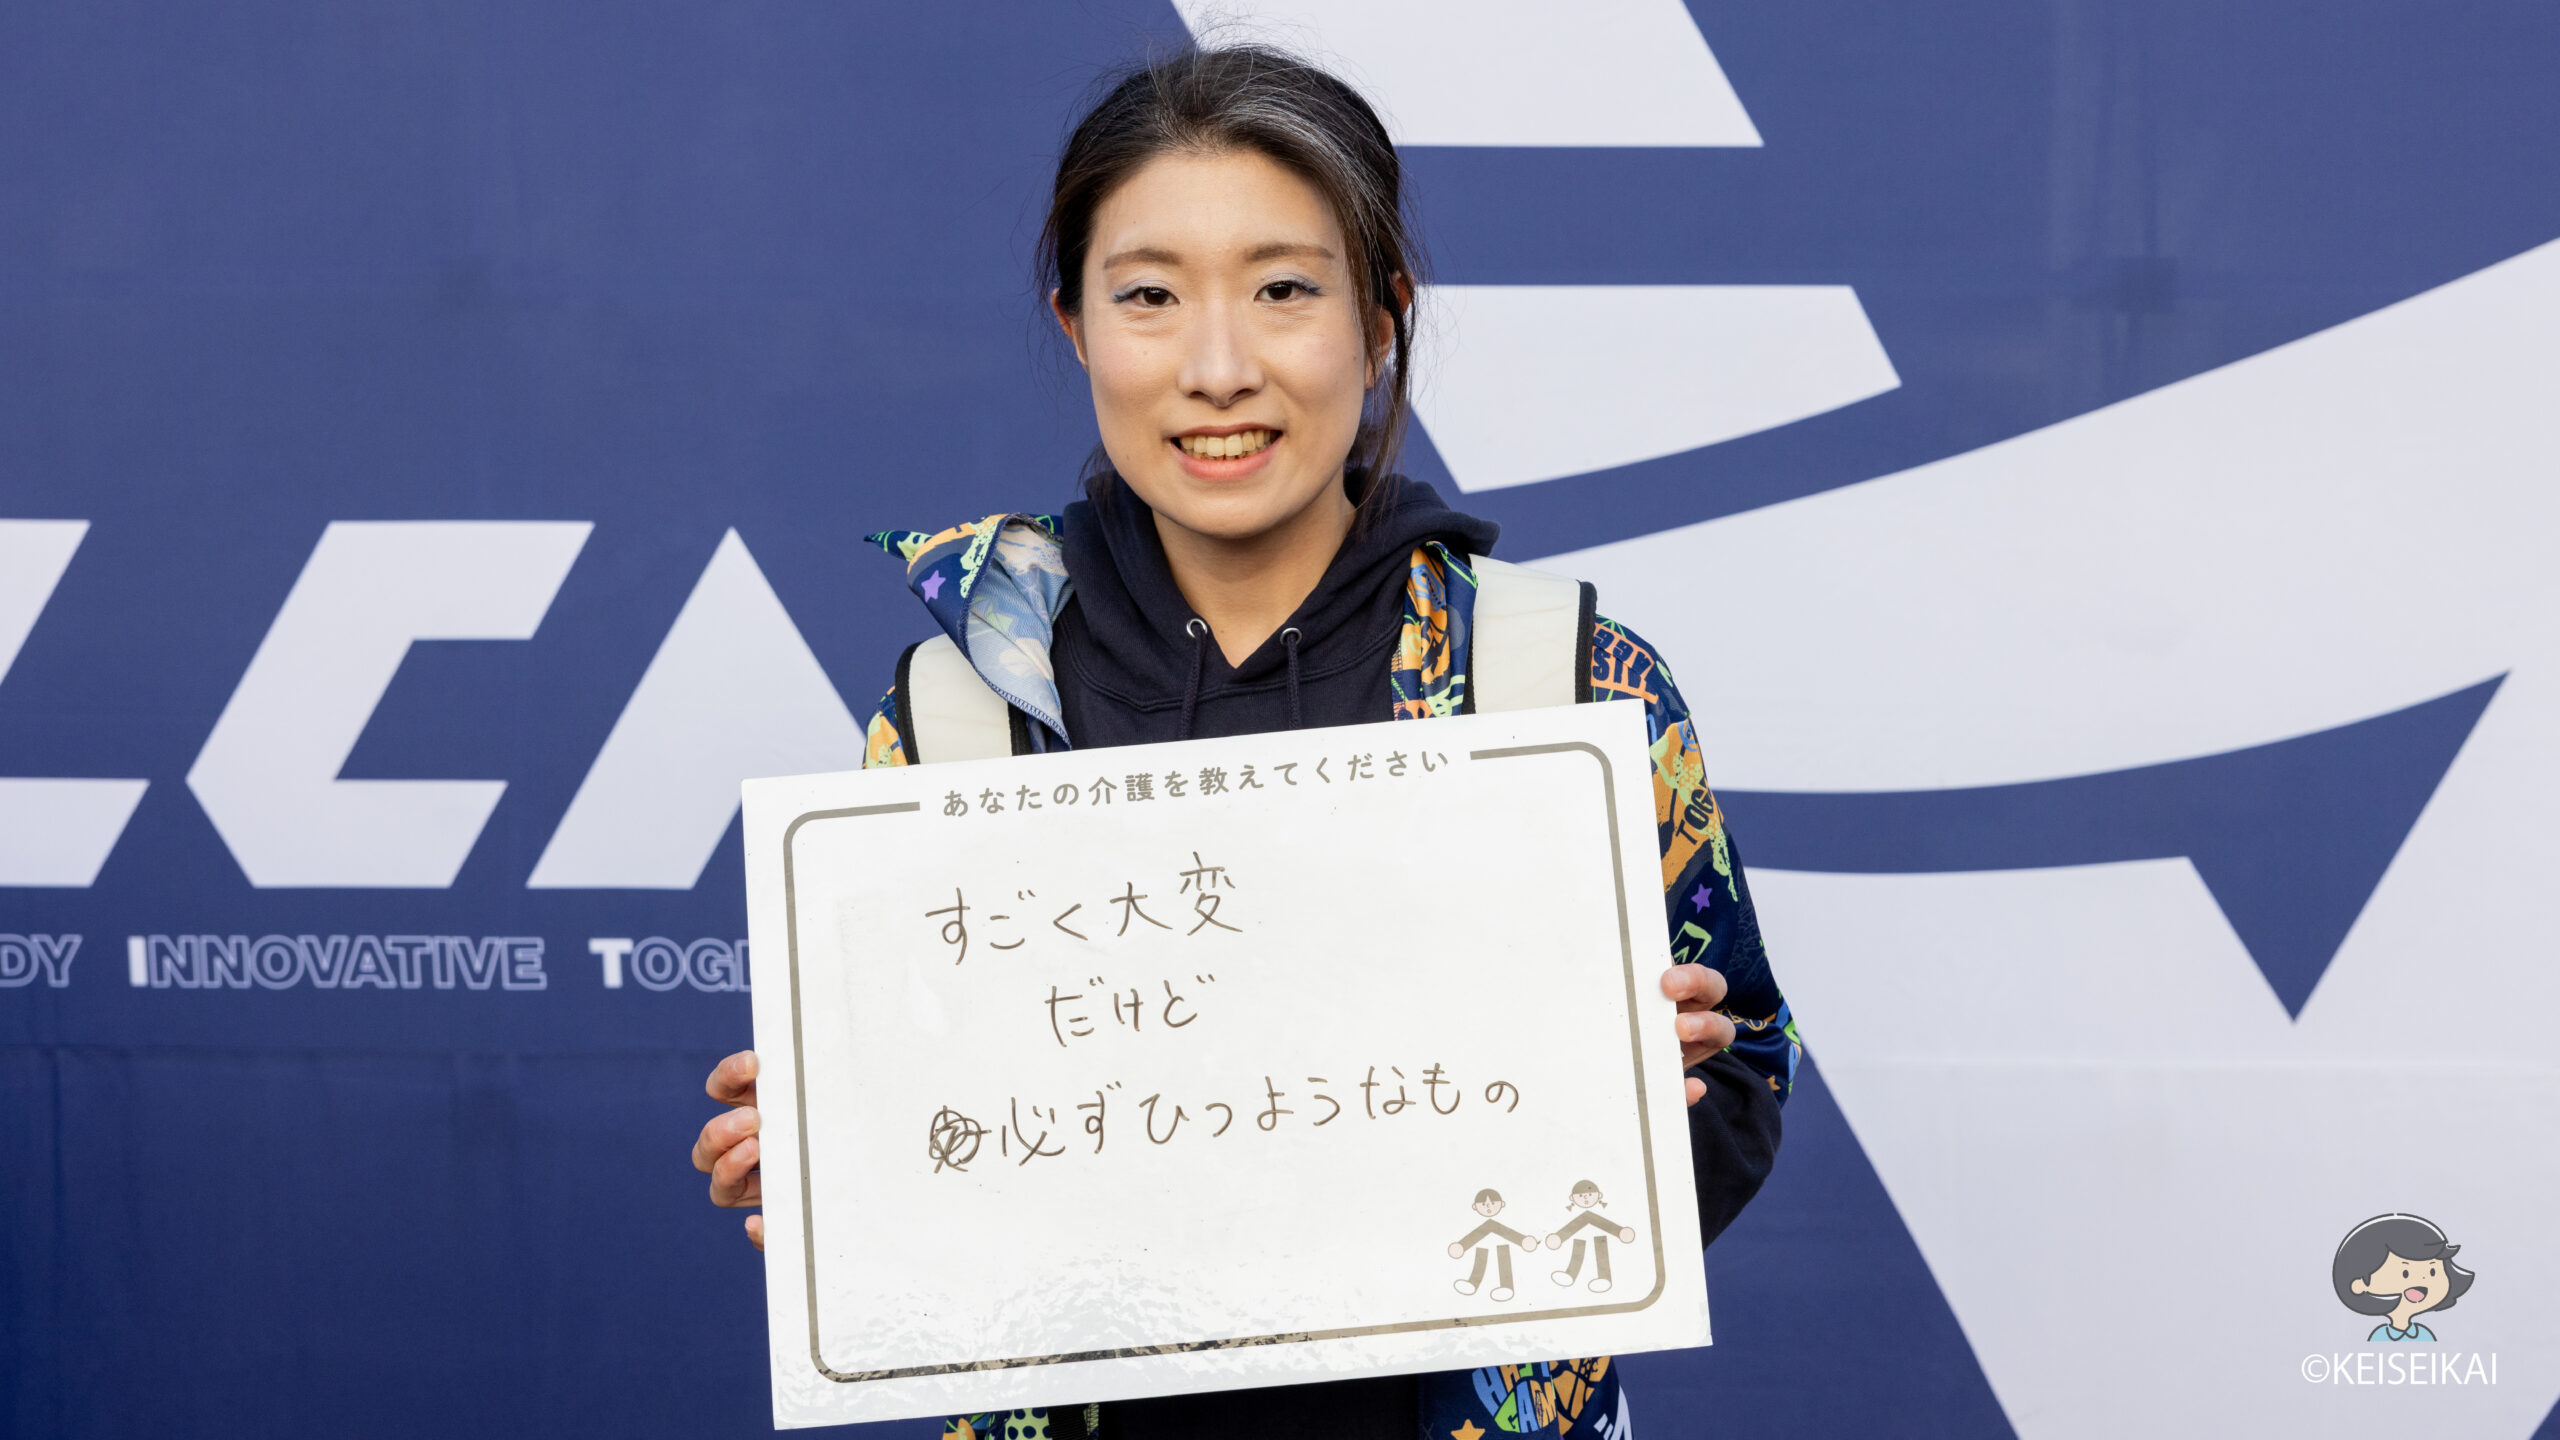 LCA
DY INNOVATIVE TOG
あなたの介護を教えてください
すごく大変
だけど
必ずひつようなもの
©KEISEIKAI